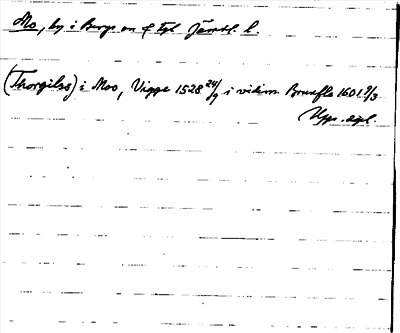 Mo, by i Bergs sn o tgl Jämtl. l.
(Thorgilss) i Moo, Vigge 1528 24/9 i vidim Brunflo 1601 9/3
Upps. dipl.